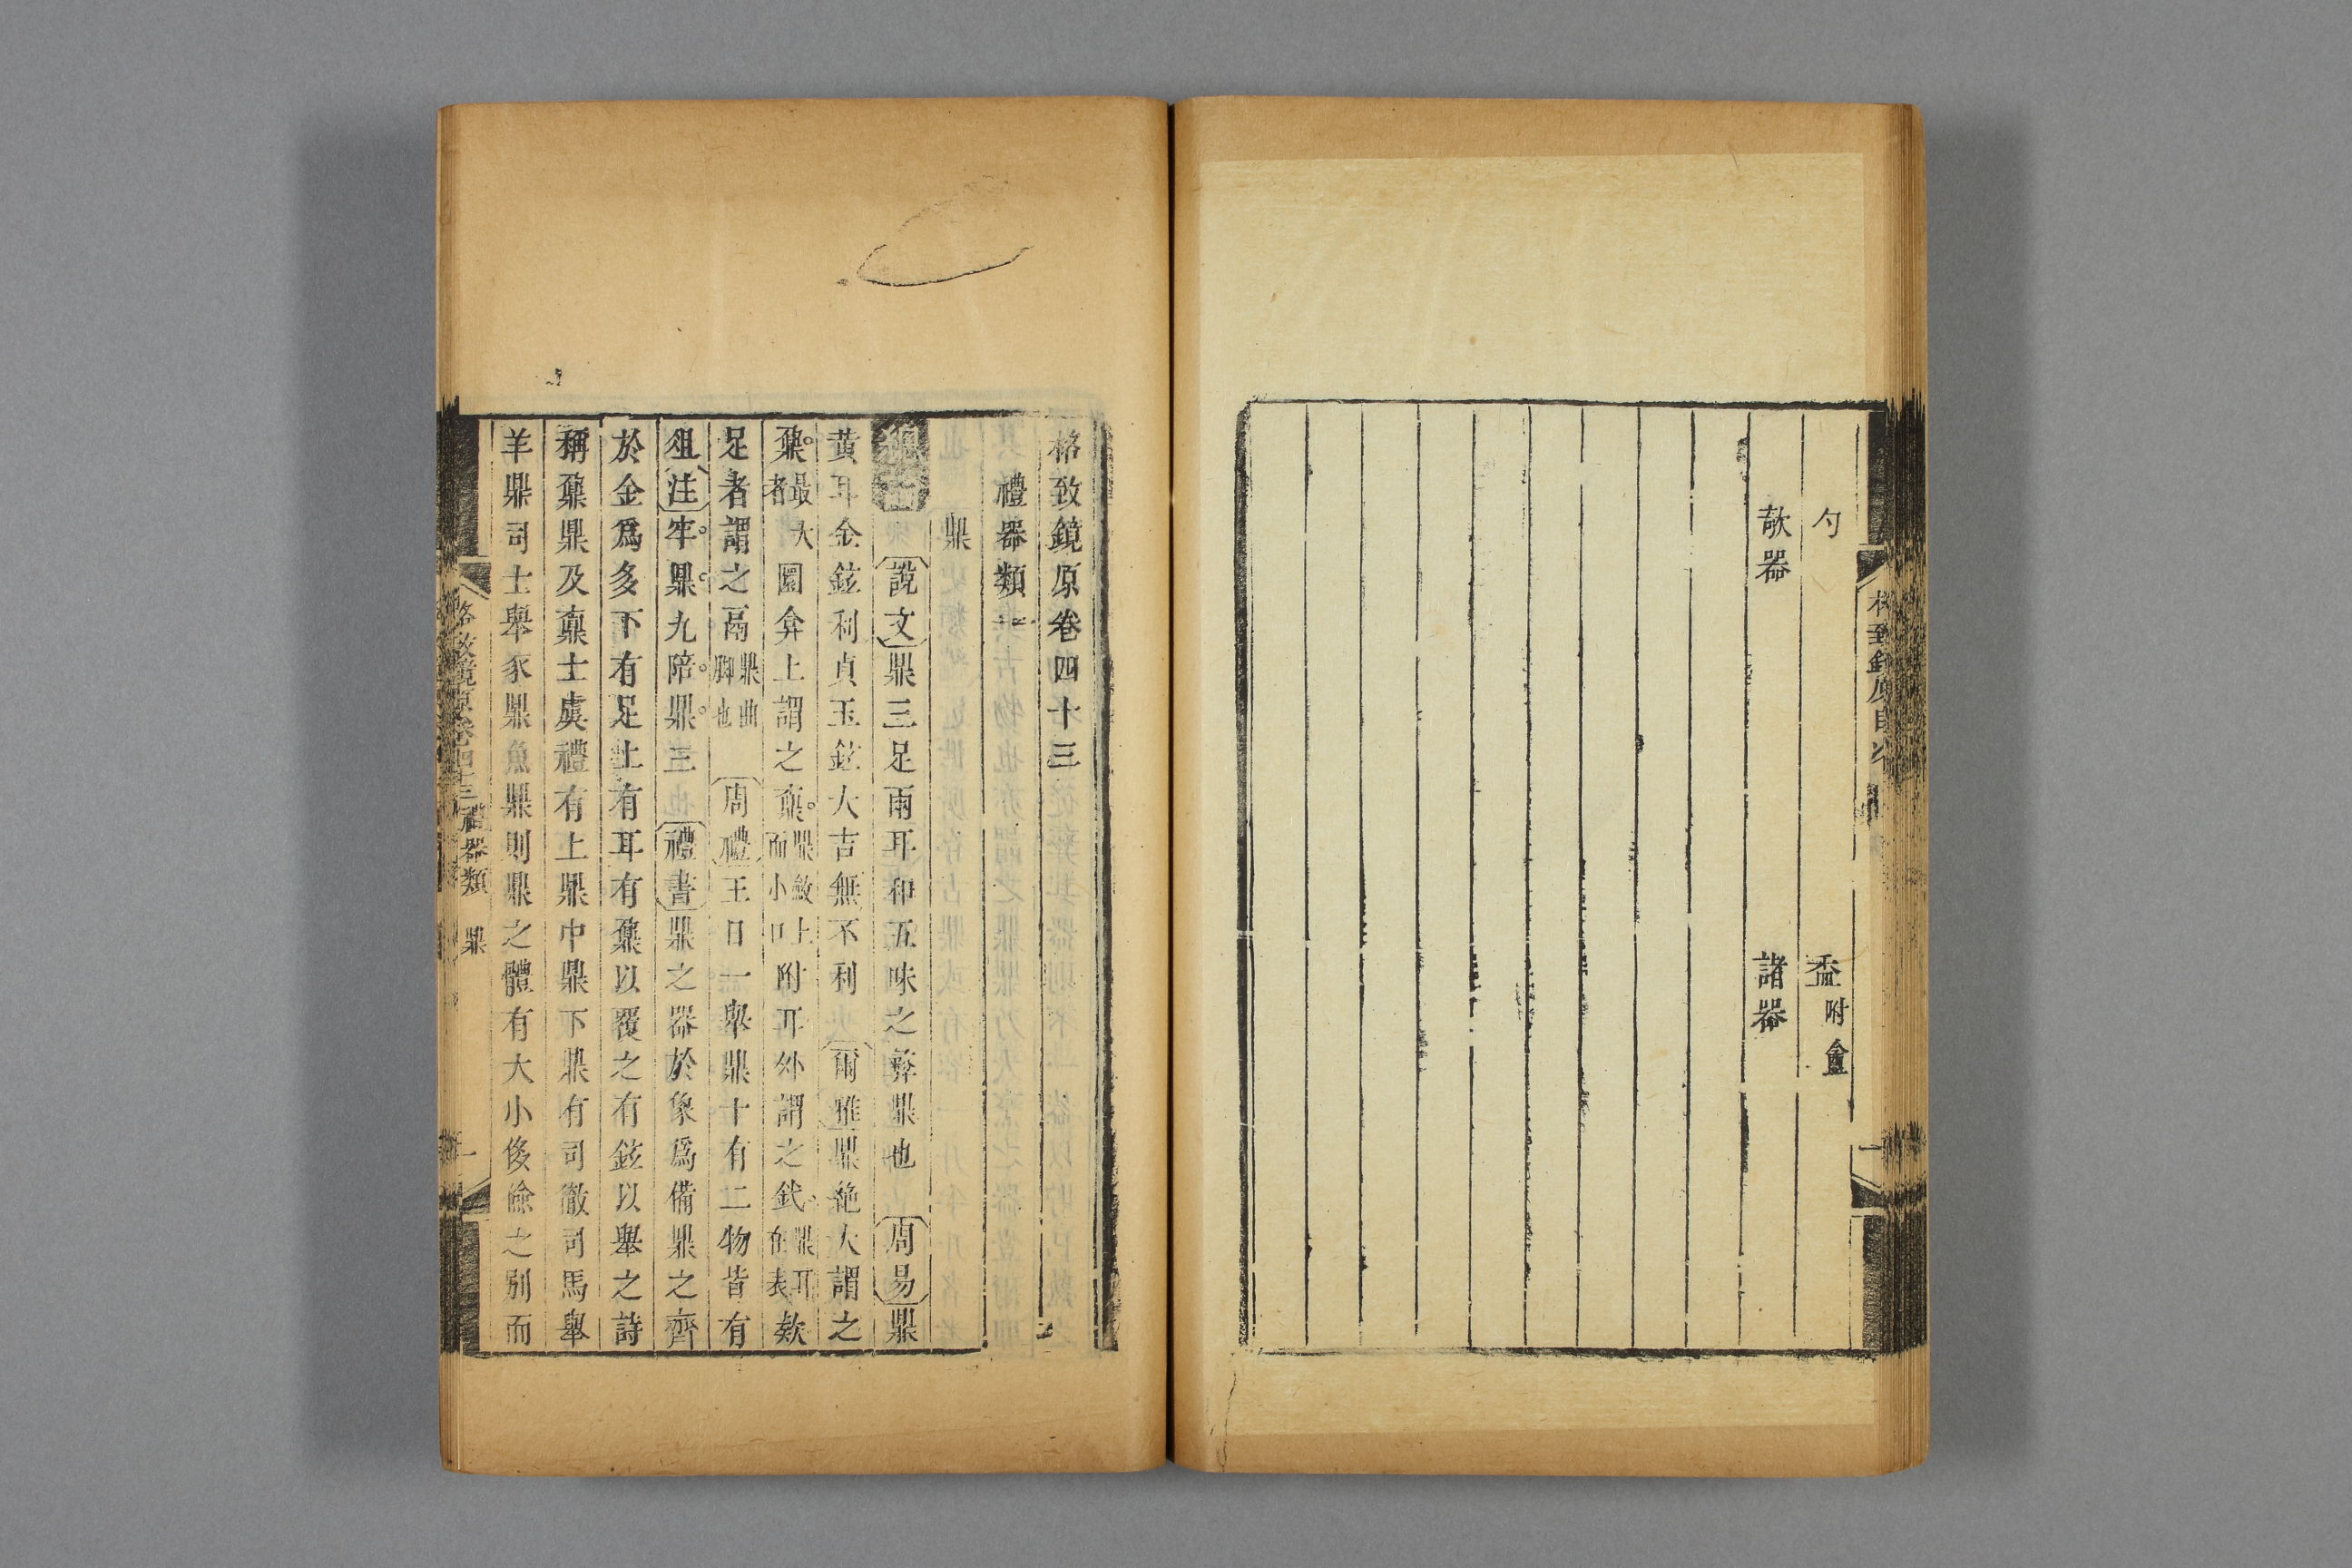 勺 盉 附盒
欹器 諸器
格致鏡原卷四十三
禮器類一
鼎
說文鼎三足兩耳和五味之彝鼎也 周易鼎
黃耳金鉉利貞玉鉉大吉無不利 爾雅鼎絕大謂之
鼐最大者 圜弇上謂之鼒鼎斂上而小口 附耳外謂之釴鼎耳在表 欵
足者謂之鬲鼎曲脚也 周禮王日一舉鼎十有二物皆有
俎注牢鼎九陪鼎三 禮書鼎之器於象爲備鼎之齊
於金爲多下有足上有耳有鼏以覆之有鉉以舉之詩
稱鼐鼎及鼒士虞禮有上鼎中鼎下鼎有司徹司馬舉
羊鼎司士舉豕鼎魚鼎則鼎之體有大小侈儉之別而
格致鏡原卷四十三 禮器類 鼎 一